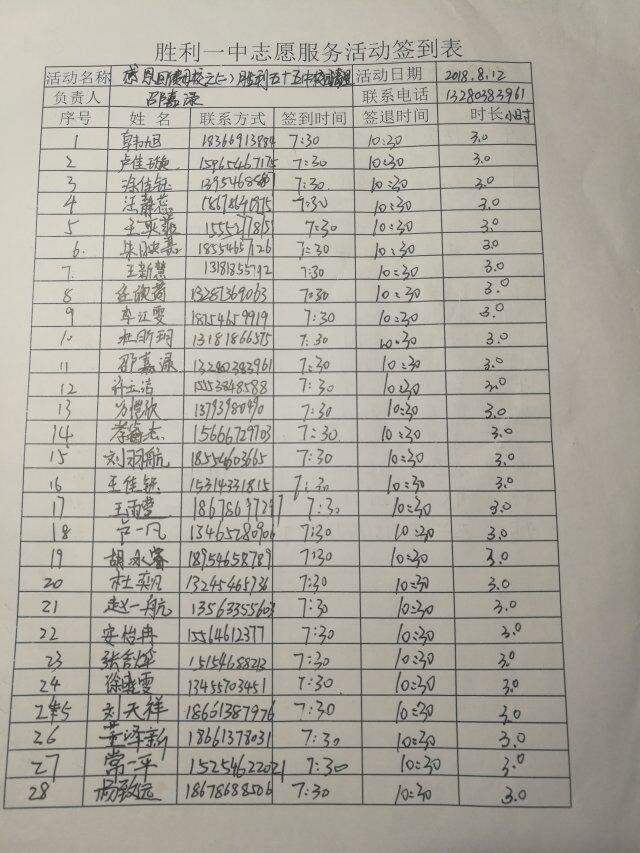 胜利一中志愿服务活动签到表
活动名称 感恩回馈母校之(二)胜利五十五中 活动日期 2018.8.12
负责人 邵嘉渌 联系电话 13280383961
序号 姓名 联系方式 签到时间 签退时间 时长小时
1 18366913884 7:30 10:30 3.0
2 卢佳璇 15865467175 7:30 10:30 3.0
3 涂佳钰 7:30 10:30 3.0
4 汪静蕊 7:30 10:30 3.0
5 7:30 10:30 3.0
6. 7:30 10:30 3.0
7. 王新慧 13181855792 7:30 10:30 3.0
8 13287369063 7:30 10:30 3.0
9 李江雯 18754659919 7:30 10:30 3.0
10 杜昕珂 13181866575 7:30 10:30 3.0
11 邵嘉渌 13280383961 7:30 10:30 3.0
12 许立洁 7:30 10:30 3.0
13 13793980490 7:30 10:30 3.0
14 15666729703 7:30 10:30 3.0
15 刘羽航 18554603665 7:30 10:30 3.0
16 王佳钰 15314331815 7:30 10:30 3.0
17 王雨萱 18678697297 7:30 10:30 3.0
18 芦一凡 13465280906 7:30 10:30 3.0
19 胡冰睿 18954658789 7:30 10:30 3.0
20 杜奕凡 13245465736 7:30 10:30 3.0
21 赵一航 13563355603 7:30 10:30 3.0
22 安怡冉 15564612377 7:30 10:30 3.0
23 15154688213 7:30 10:30 3.0
24 徐晓雯 13455703451 7:30 10:30 3.0
25 刘天祥 18661387976 7:30 10:30 3.0
26 董泽新 18661378031 7:30 10:30 3.0
27 常一平 15254622021 7:30 10:30 3.0
28 杨致远 18678688506 7:30 10:30 3.0